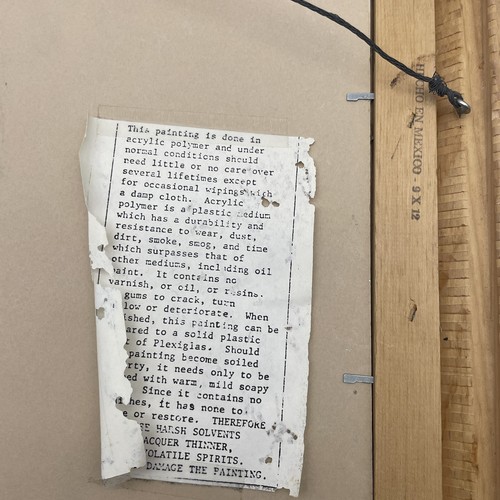 This painting is done in
acrylic polymer and under
normal conditions should
need little or no care over
several lifetimes except
for occasional wipings with
a damp cloth. Acrylic
polymer is a plastic medium
which has a durability and
resistance to wear, dust,
dirt, smoke, smog, and time
which surpasses that of
other mediums, including oil
paint. It contains no
varnish, or oil, or resins.
gums to crack, turn
low or deteriorate. When
ished, this painting can be
ared to a solid plastic
t of Plexiglas. Should
painting become soiled
rty, it needs only to be
ed with warm, mild soapy
Since it contains no
ishes, it has none to
e or restore. THEREFORE,
SE HARSH SOLVENTS
LACQUER THINNER,
VOLATILE SPIRITS.
DAMAGE THE PAINTING.
HECHO EN MEXICO - 9 X 12